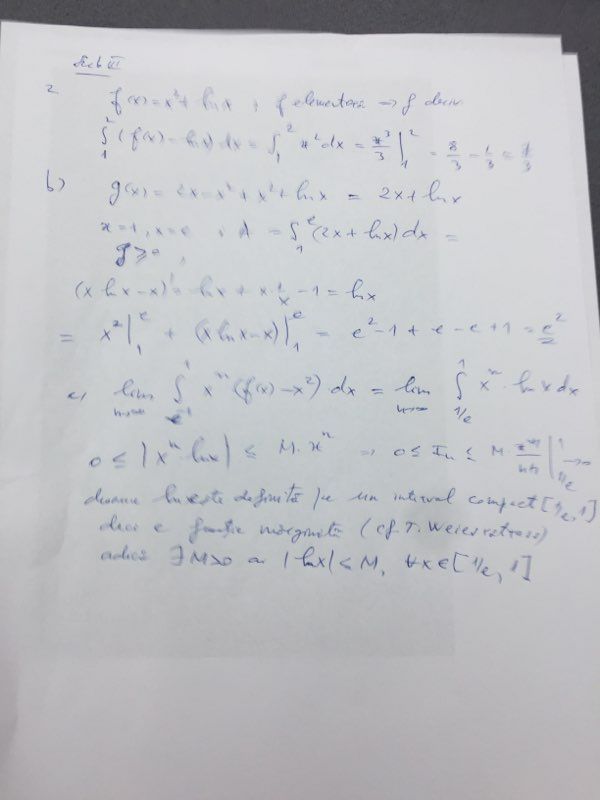 Sub III
2. f(x) = x² + ln x, f elementară => f deriv
∫₁² (f(x) - ln x) dx = ∫₁² x² dx = x³/3 |₁² = 8/3 - 1/3 = 7/3
b) g(x) = 2x - x² + x² + ln x = 2x + ln x
x=1, x=e, A = ∫₁ᵉ (2x + ln x) dx =
g ≥ 0,
(x ln x - x)' = ln x + x · 1/x - 1 = ln x
= x² |₁ᵉ + (x ln x - x) |₁ᵉ = e² - 1 + e - e + 1 = e²
c) lim n→∞ ∫ₑ₋₁¹ xⁿ (f(x) - x²) dx = lim n→∞ ∫₁/ₑ¹ xⁿ · ln x dx
0 ≤ |xⁿ ln x| ≤ M · xⁿ => 0 ≤ Iₙ ≤ M · xⁿ⁺¹/n+1 |₁/ₑ¹ → 0
deoarece ln x este definită pe un interval compact [1/e, 1]
deci e funcție mărginită (cf. T. Weierstrass)
adică ∃ M>0 aî |ln x| ≤ M, ∀x ∈ [1/e, 1]